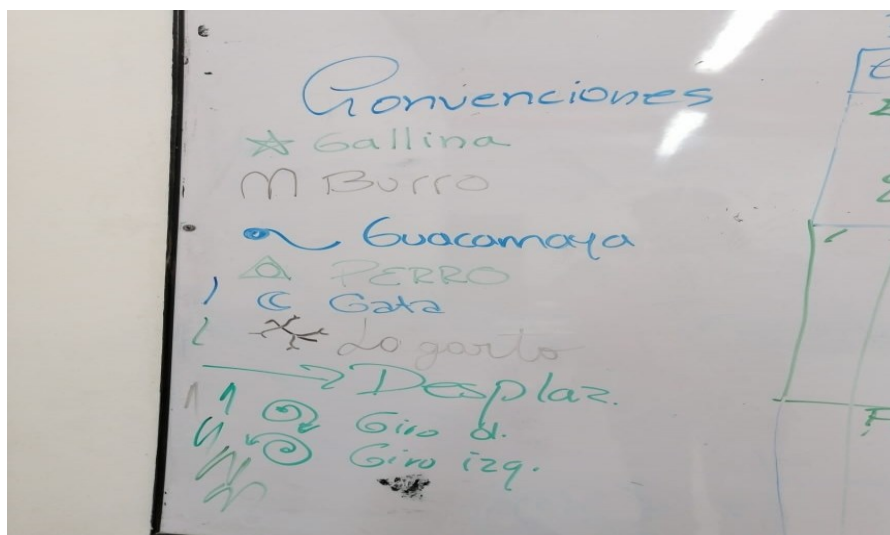 Convenciones
Gallina
Burro
Guacamaya
PERRO
Gata
Lagarto
Desplaz.
Giro d.
Giro izq.